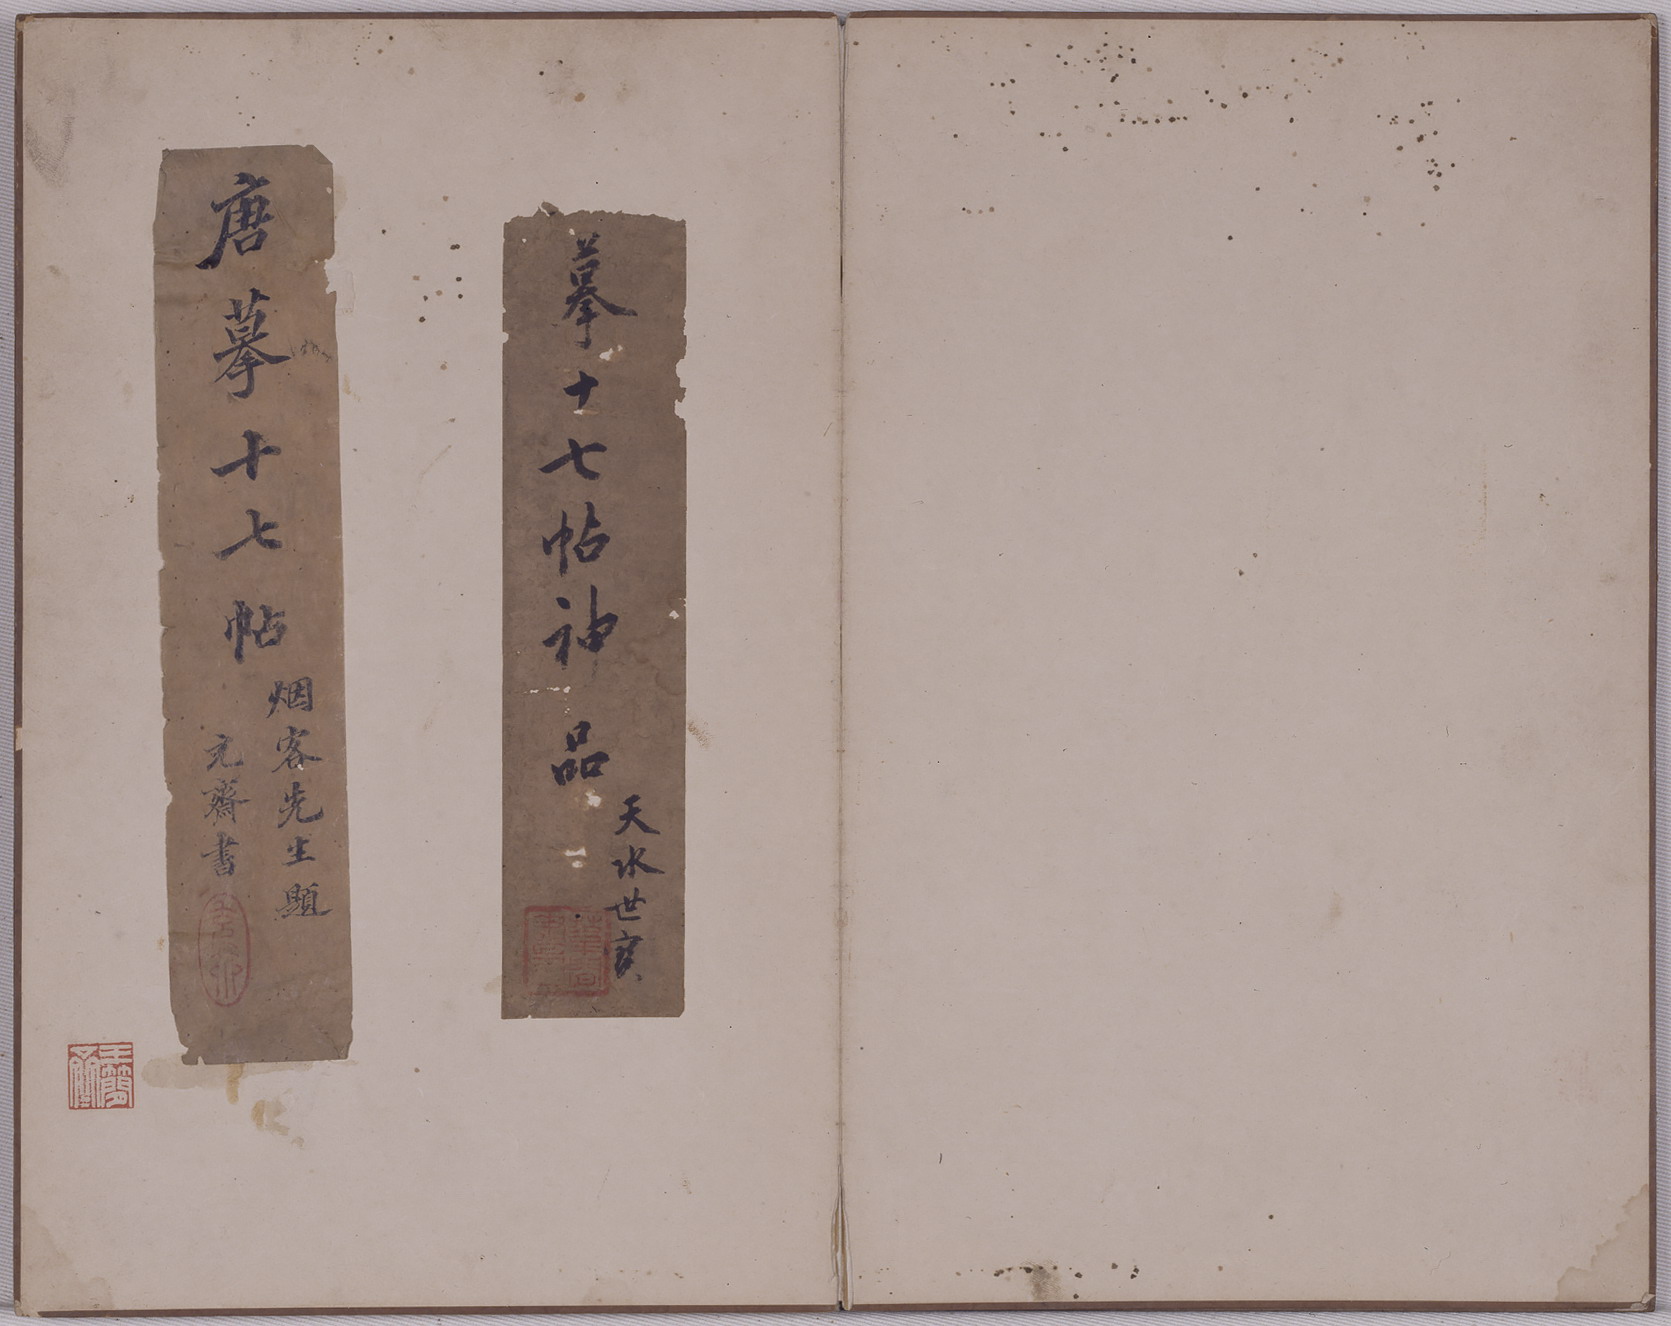 摹十七帖神品
天水世寶
唐摹十七帖
烟客先生題
元齋書